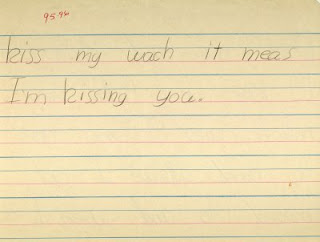 kiss my wach it meas
I'm kissing you.